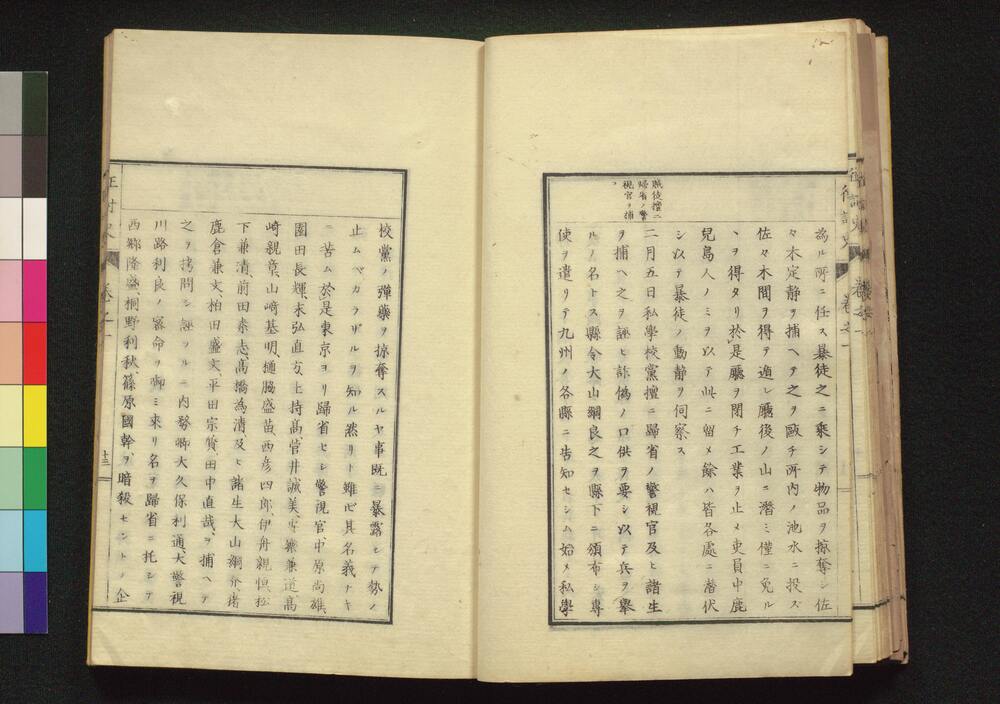 征討史 卷之一
為ル所ニ任ス暴徒之ニ乘シテ物品ヲ掠奪シ佐
々木定静ヲ捕ヘテ之ヲ毆チ所内ノ池水ニ投ズ
佐々木間ヲ得テ遁レ廳後ノ山ニ潛ミ僅ニ免ル
ヽヲ得タリ於是廳ヲ閉チ工業ヲ止メ吏員中鹿
兒島人ノミヲ以テ此ニ留メ餘ハ皆各處ニ潛伏
シ以テ暴徒ノ動静ヲ伺察ス
賊徒擅ニ
歸省ノ警
視官ヲ捕
フ
二月五日私學校黨擅ニ歸省ノ警視官及ヒ諸生
ヲ捕ヘ之ヲ誣ヒ詐偽ノ口供ヲ要シ以テ兵ヲ擧
ルノ名トス縣令大山綱良之ヲ縣下ニ頒布シ專
使ヲ遣リテ九州ノ各縣ニ告知セシム始メ私學
校黨ノ彈藥ヲ掠奪スルヤ事既ニ暴露シテ勢ノ
止ムベカラザルヲ知ル然リト雖ドモ其名義ナキ
ニ苦ム於是東京ヨリ歸省セシ警視官中原尚雄、
園田長輝、末弘直方、土持高、菅井誠美、安樂兼道、高
崎親章、山﨑基明、樋脇盛苗、西彦四郎、伊丹親恒、松
下兼清、前田素志、高橋為清及ヒ諸生大山綱介、猪
鹿倉兼文、柏田盛文、平田宗質、田中直哉、ヲ捕ヘテ
之ヲ拷問シ誣ツルニ内務卿大久保利通、大警視
川路利良ノ密命ヲ啣ミ來リ名ヲ歸省ニ托シテ
西郷隆盛、桐野利秋、篠原國幹ヲ暗殺セントノ企
征討史 卷之一
十三